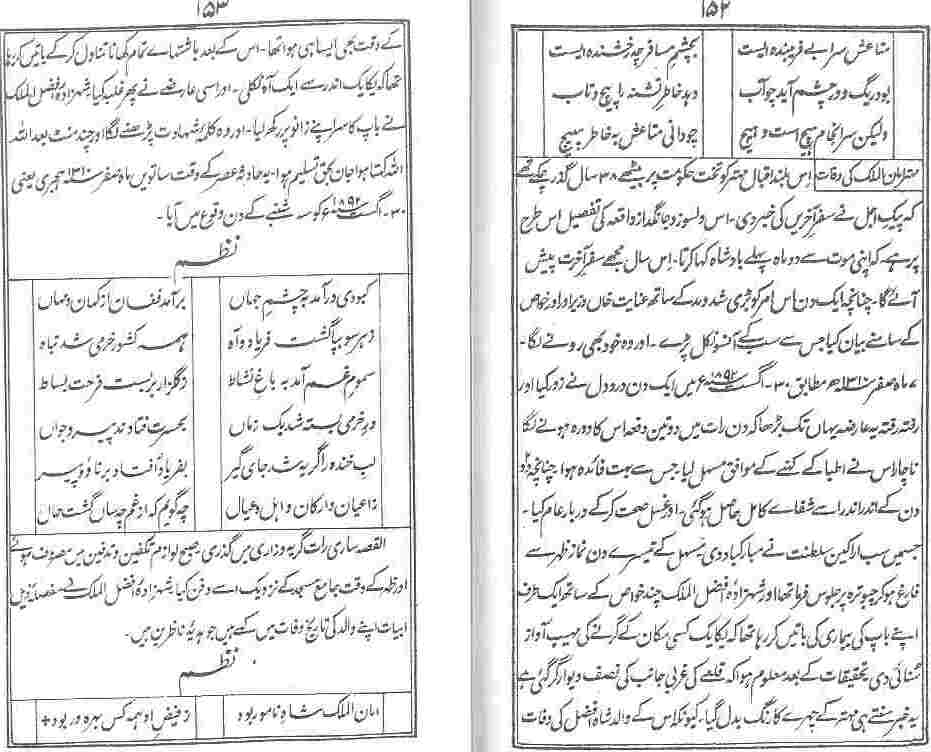 ۱۵۲
متاعش سرابے فریبندہ ایست بچشمِ مسافر چہ رخشندہ ایست
بود ریگ و در چشم آید چو آب دہد خاطرِ تشنہ را پیچ و تاب
ولیکن سرانجام ہیچ است و ہیچ چو دانی متاعش بہ خاطر مپیچ
مہتر امان الملک کی وفات اِس بلند اقبال مہتر کو تختِ حکومت پر بیٹھے ۳۸ سال گذر چکے تھے
کہ پیکِ اجل نے سفرِ آخریں کی خبر دی۔ اس دلسوز و جانگداز واقعہ کی تفصیل اس طرح
پر ہے۔ کہ اپنی موت سے دو ماہ پہلے بادشاہ کہا کرتا۔ اِس سال مجھے سفرِ آخرت پیش
آئے گا۔ چنانچہ ایک دن اس امر کو بڑی شد و مد کے ساتھ عنایت خاں وزیر اور خواص
کے سامنے بیان کیا جس سے سب کے آنسو نکل پڑے۔ اور وہ خود بھی رونے لگا۔
۷ ماہ صفر ۱۳۱۰ھ مطابق ۳۰۔ اگست ۱۸۹۲ء میں ایک دن دردِ دل نے زور کیا اور
رفتہ رفتہ یہ عارضہ یہاں تک بڑھا کہ دن رات میں دو تین دفعہ اس کا دورہ ہونے لگا
ناچار اس نے اطبا کے کہنے کے موافق مسہل لیا جس سے بہت فائدہ ہوا۔ چنانچہ دو
دن کے اندر اندر اسے شفائے کامل حاصل ہو گئی۔ اور غسلِ صحت کر کے دربارِ عام کیا۔
جسمیں سب اراکین سلطنت نے مبارکباد دی۔ مسہل کے تیسرے دن نماز ظہر سے
فارغ ہو کر چبوترہ پر جلوس فرما تھا اور شہزادہ افضل الملک چند خواص کے ساتھ ایک طرف
اپنے باپ کی بیماری کی باتیں کر رہا تھا کہ یکایک کسی مکان کے گرنے کی مہیب آواز
سنائی دی تحقیقات کے بعد معلوم ہوا کہ قلعے کی غربی جانب کی نصف دیوار گر گئی ہے
یہ خبر سنتے ہی مہتر کے چہرے کا رنگ بدل گیا۔ کیونکہ اس کے والد شاہ افضل کی وفات
۱۵۳
کے وقت بھی ایسا ہی ہوا تھا۔ اس کے بعد باشتہائے تمام کھانا تناول کر کے باتیں کر رہا
تھا کہ یکایک اندر سے ایک آہ نکلی۔ اور اسی عارضے نے پھر غلبہ کیا۔ شہزادہ افضل الملک
نے باپ کا سر اپنے زانو پر رکھ لیا۔ اور وہ کلمۂ شہادت پڑھنے لگا اور چند منٹ بعد اللہ
اللہ کہتا ہوا جان بحق تسلیم ہوا۔ یہ حادثہ عصر کے وقت ساتویں ماہ صفر ۱۳۱۰ ہجری یعنی
۳۰۔ اگست ۱۸۹۲ء کو سہ شنبے کے دن وقوع میں آیا۔
نظم
کبودی درآمد بہ چشمِ جہاں برآمد فغان از کہان و مہاں
ز ہر سو بپا گشت فریاد و آہ ہمہ کشورِ خرمی شد تباہ
سموم غم آمد بہ باغِ نشاط ز گلزار بربست فرحت بساط
درِ خرمی بستہ شد یک زماں بحسرت فتادند پیر و جواں
لب خندہ را گریہ شد جای گیر بفریاد اُفتاد برنا و پیر
ز اعیان و ارکان و اہل و عیال چہ گویم کہ از غم چہ ساں گشت حال
القصہ ساری رات گریہ و زاری میں گذری۔ صبح لوازم تکفین و تدفین میں مصروف ہوئے
اور ظہر کے وقت جامع مسجد کے نزدیک اسے دفن کیا۔ شہزادہ افضل الملک نے مفصلہ ذیل
ابیات اپنے والد کی تاریخ وفات میں کہے ہیں جو ہدیۂ ناظرین ہیں۔
نظم
امان الملک شاہِ نامور بود ز فیضِ او ہمہ کس بہرہ ور بود